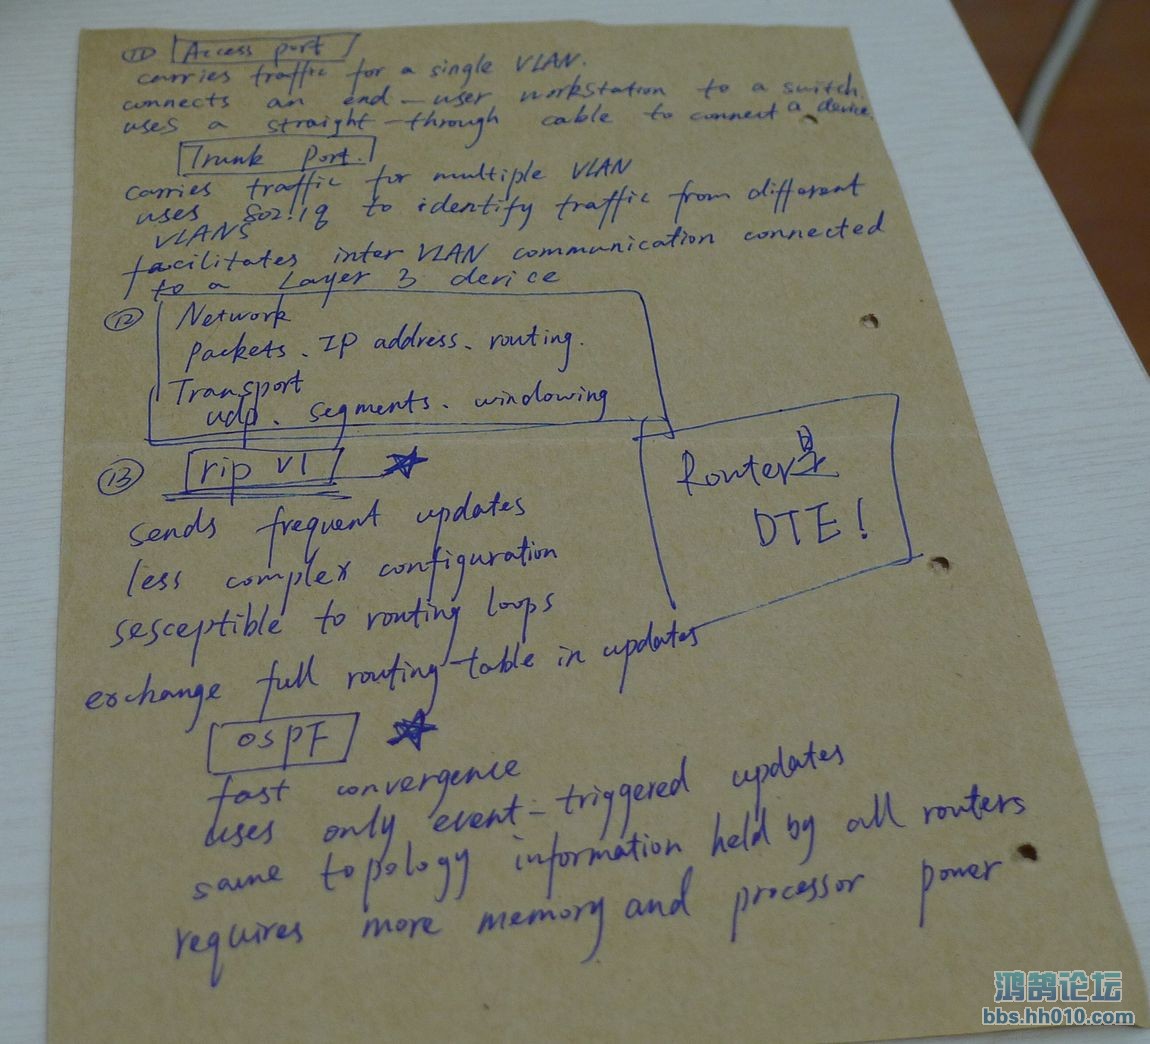 ⑪ Access port
carries traffic for a single VLAN.
connects an end-user workstation to a switch.
uses a straight-through cable to connect a device.
Trunk Port.
carries traffic for multiple VLAN
uses 802.1q to identify traffic from different
VLANS
facilitates inter VLAN communication connected
to a Layer 3 device
⑫ Network
packets、IP address、routing.
Transport
udp、segments、windowing
Router是
DTE!
⑬ rip V1
sends frequent updates
less complex configuration
sesceptible to routing loops
exchange full routing table in updates
OSPF
fast convergence
uses only event-triggered updates
same topology information held by all routers
requires more memory and processor power
鸿鹄论坛
bbs.hh010.com